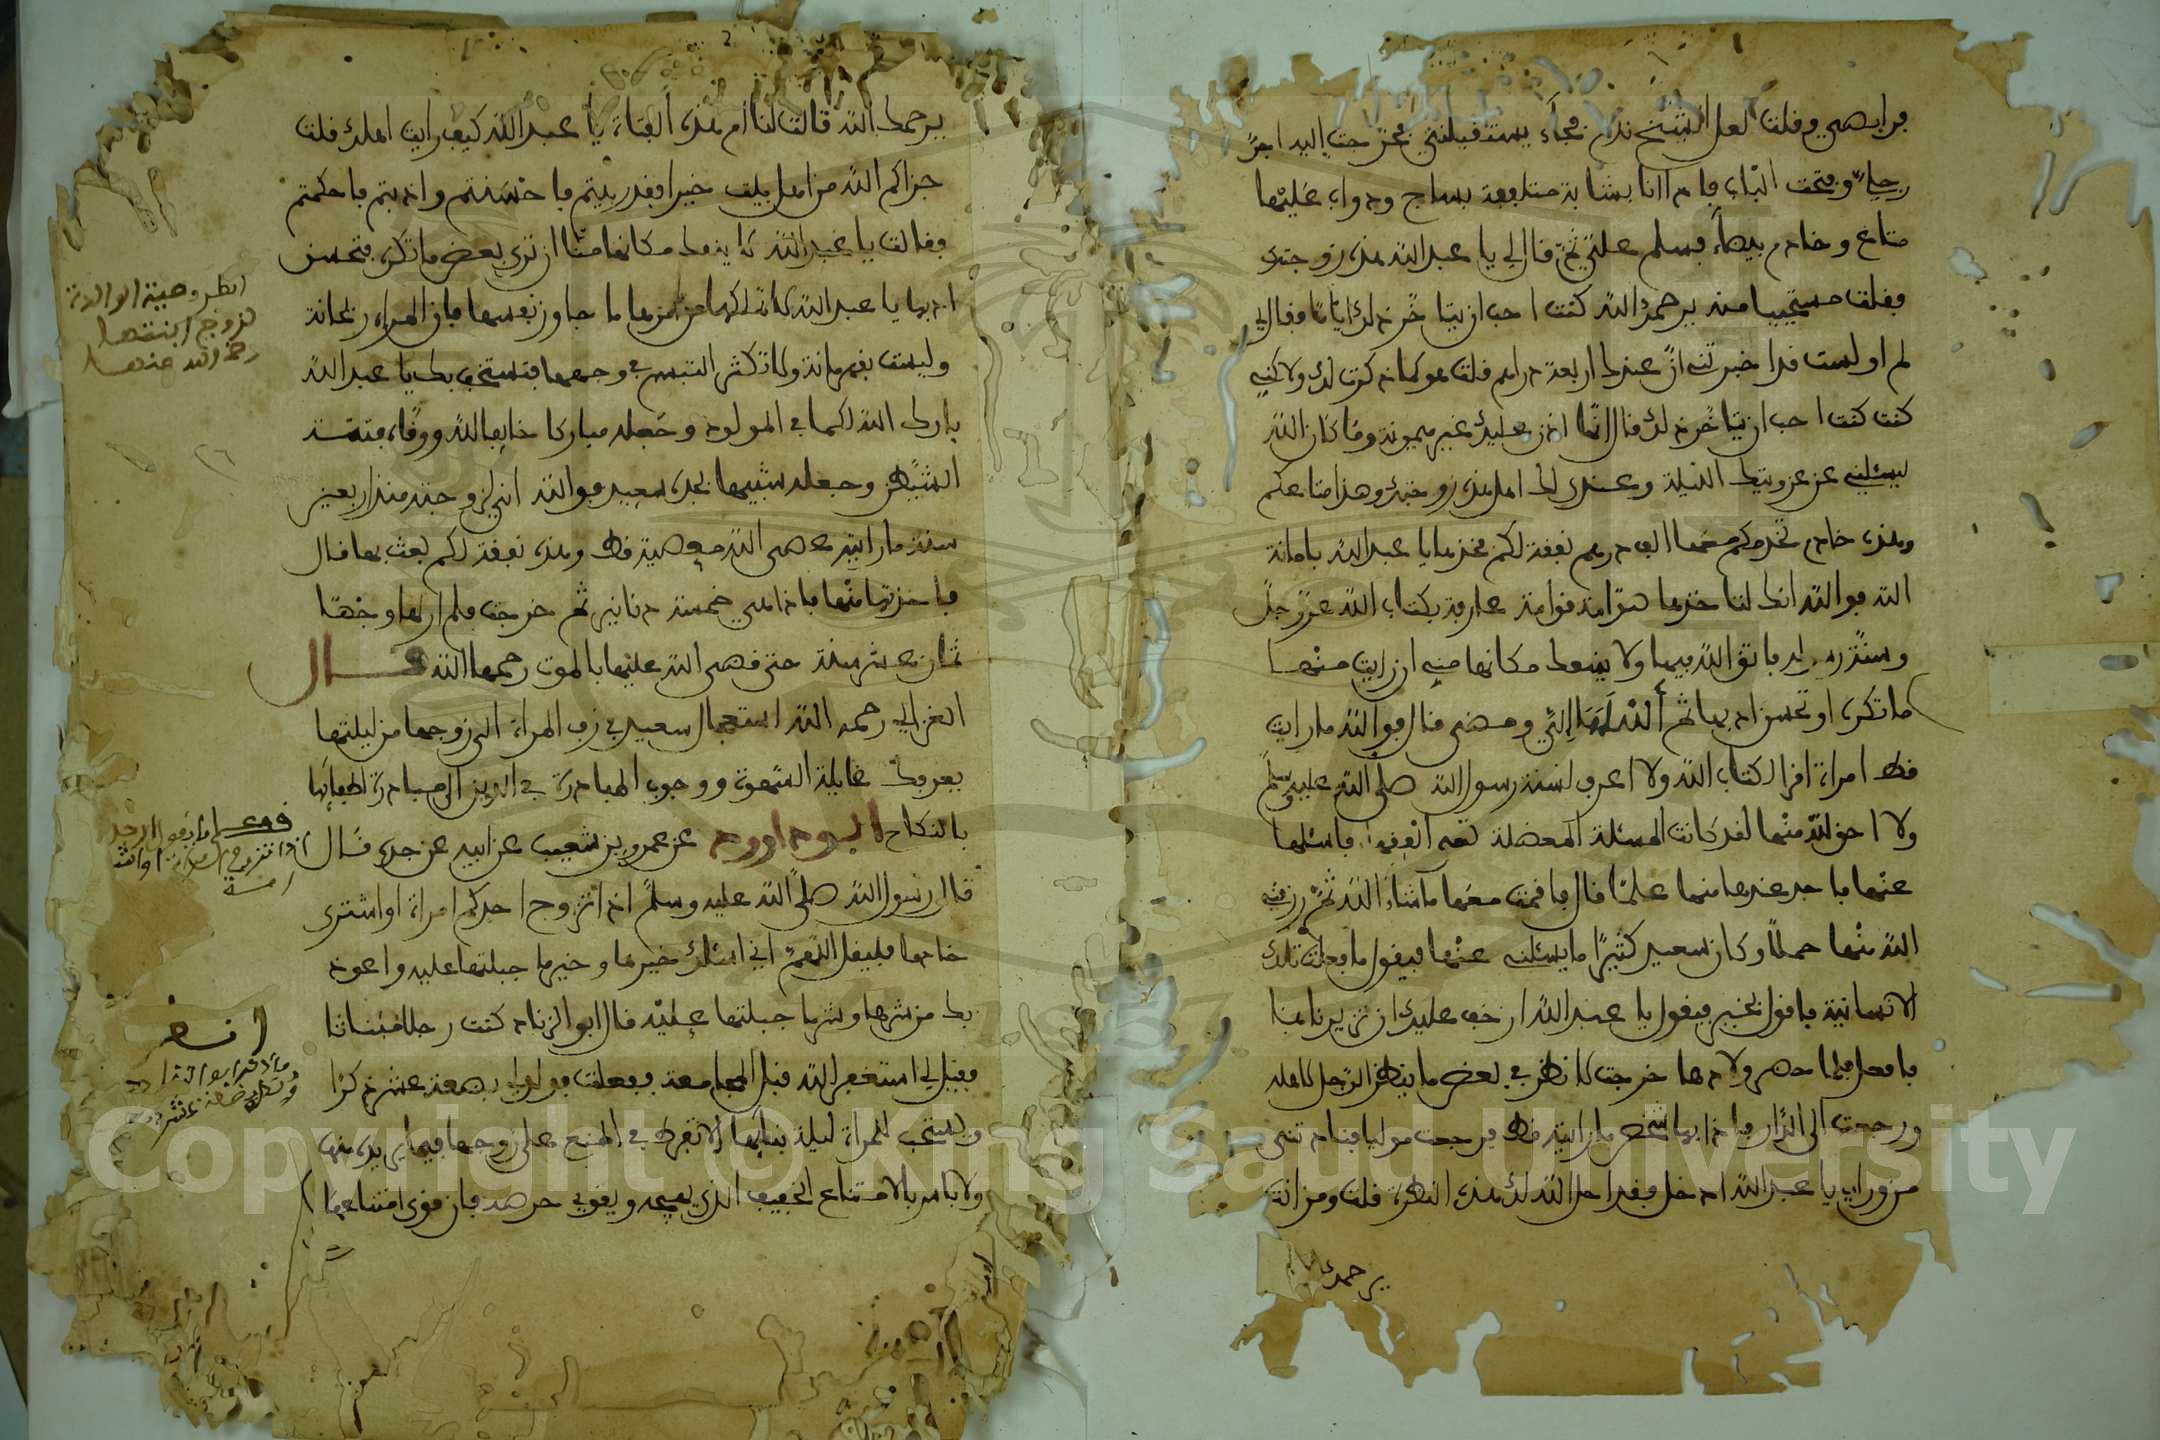 فرابصي وقلت لعل الشيخ ندم فجاء يستقيلني فخرجت إليه اجر
رجلي وفتحت الباب فاذا انا بشابة متلففة بساج ودواب عليها
متاع وخادم بيضاء فسلم علي ثم قال لي يا عبد الله هذه زوجتك
فقلت مستحييا منه يرحمك الله كنت احب ان يتاخر ذلك اياما فقال لي
لم اولست قد اخبرتني ان عندك اربعة دراهم قلت هو كما ذكرت لك ولاكني
كنت كنت احب ان يتاخر ذلك قال انها اذن عليك غير ميمونة وما كان الله
ليسئلني عن عزوبتك الليلة وعندي لك اهل هذه زوجتك وهذا متاعكم
وهذه خادم تخدمكم معها الف درهم نفقة لكم فخذها يا عبد الله بامانة
الله فو الله انك لتاخذها صوامة قوامة عارفة بكتاب الله عز وجل
وسنة رسوله فاتق الله فيها ولا يمنعك مكانها مني ان رايت منها
ما تكره او تحسن ادبها ثم سلمها الي ومضى قال فو الله ما رايت
قط امراة اقرا لكتاب الله ولا اعرف لسنة رسول الله صلى الله عليه وسلم
ولا اخوف لله منها لقد كانت المسئلة المعضلة تعيي الفقهاء فاسئلها
عنها فاجد عندها منها علما قال فاقمت معها ما شاء الله ثم رزقني
الله منها حملا وكان سعيد كثيرا ما يسئلني عنها فيقول ما فعلت تلك
الانسانية فاقول بخير فيقول يا عبد الله ان خف عليك ان تزيرناها
فافعل فلما حضر ولادها خرجت لانظر في بعض ما ينظر الرجل لاهله
ورجعت الى الدار فاذا بها شخص ما رايته قط فرجعت موليا فنادتني
من وراي يا عبد الله ادخل فقد احل الله لك هذه النظرة قلت ومن انت
يرحمك
يرحمك الله قالت انا ام هذه الفتاة يا عبد الله كيف رايت اهلك قلت
جزاكم الله من اهل بيت خيرا فقد ربيتم فاحسنتم وادبتم فاحكمتم
فقالت يا عبد الله لا يمنعك مكانها منا ان ترى بعض ما تكره فتحسن
ادبها يا عبد الله لا تملكها من امرها ما جاوز نفسها فان المراة ريحانة
وليست بقهرمانة ولا تكثر التبسم في وجهها فتستخف بك يا عبد الله
بارك الله لكما في المولود وجعله مباركا خايفا لله ووقاه فتنة
الشيطان وجعله شبيها بجده سعيد فو الله اني لزوجته منذ اربعين
سنة ما رايته عصى الله معصية قط وهذه نفقة لكم بعث بها قال
فاخذتها منها فاذا هي خمسة دنانير ثم خرجت فلم ارها وجهتا
ثمان عشر سنة حتى قضى الله عليها بالموت رحمها الله قال
الغزالي رحمه الله استعجال سعيد في زف المراة الى زوجها من ليلتها
يعرفك غايلة الشهوة ووجوب المبادرة في الدين الى مبادرة اطفائها
بالنكاح ابو داوود عن عمرو بن شعيب عن ابيه عن جده قال
قال رسول الله صلى الله عليه وسلم اذا تزوج احدكم امراة او اشترى
خادما فليقل اللهم اني اسئلك خيرها وخير ما جبلتها عليه واعوذ
بك من شرها وشر ما جبلتها عليه قال ابو الزناد كنت رجلا مئناثا
فقيل لي استغفر الله قبل المجامعة ففعلت فولد لي بضعة عشر ذكرا
ويستحب للمراة ليلة بنائها لا تفرط في المنع على زوجها فيما يريده منها
ولا باس بالامتناع الخفيف الذي يهيجه ويقوي حرصه فان قوى امتناعها
انظر وصية الوالدة
لزوج ابنتها
رحمة الله عنهما
قف على ما يقول الرجل
اذا تزوج امراة او اشترى
امة
انظر
ما ذكر ابو الزناد